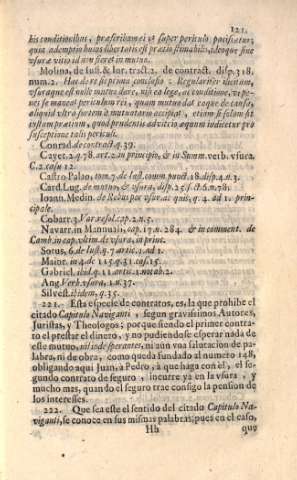 121.
his conditionibus, præscribam ei ut super periculo paciscatur;
quia ademptio huius libertatis est pretio æstimabilis, ideoque sine
vsuræ vitio id non fieret in mutuo.
Molina, de Iust. & Iur. tract. 2. de contract. disp. 318.
num. 2. Hac de re sit prima conclusio: Regulariter illicitum,
vsuraque est nolle mutuo dare, nisi ea lege, ac conditione, vt pe-
nes se maneat periculum rei, quam mutuo dat eoque de causa,
aliquid vltra sortem à mutuatario accipiat, etiam si solum sit
iustum pretium, quod prudentis arbitrio, æquum iudicetur pro
susceptione talis periculi.
Conrad. de contract. q. 39.
Cayet. 2. q. 78. art. 2. in principio, & in Summ. verb. vsura.
C. 2. casu 12.
Castro Palao, tom. 7. de Iust. comm. punct. 18. disp. 4. n. 3.
Card. Lug. de mutuo, & vsura, disp. 25. s. 6. n. 78.
Ioann. Medin. de Rebus per vsur. ac quis, q. 4. ad 1. prin-
cipale.
Cobarr. 3. Var. resol. cap. 2. n. 5.
Navarr. in Mannuali, cap. 17. n. 284. & in comment. de
Camb. in cap. vltim. de vsura, in princ.
Sotus, 6. de Iust. q. 7. artic. 1. ad 1.
Maior. in 4. de 115. q. 31. cas. 15.
Gabriel, ibid. q. 11. artic. 1. notab. 2.
Ang. Verb. vsura, 1. n. 37.
Silvest. ibidem, q. 35.
221. Esta especie de contratos, es, la que prohibe el
citado Capitulo Naviganti, segun gravissimos Autores,
Juristas, y Theologos; porque siendo el primer contra-
to el prestar el dinero, y no pudiendose esperar nada de
esse mutuo, nil inde sperantes, ni aun vna salutacion de pa-
labra, ni de obra, como queda fundado al numero 148,
obligando aqui Juan, à Pedro, à que haga con èl, el se-
gundo contrato de seguro, incurre yà en la vsura, y
mucho mas, quando el seguro trae consigo la pension de
los interesses.
222. Que sea este el sentido del citado Capitulo Na-
viganti, se conoce en sus mismas palabras; pues en el caso,
Hh
que